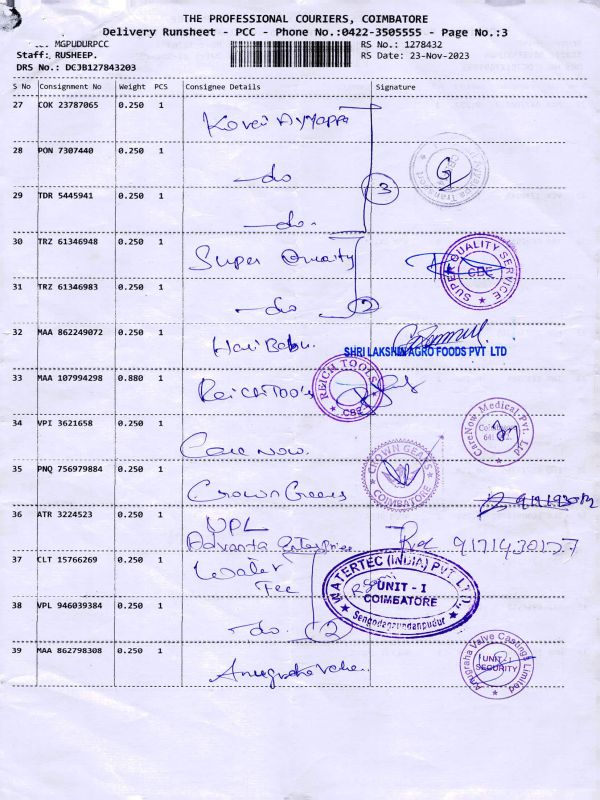 THE PROFESSIONAL COURIERS, COIMBATORE
Delivery Runsheet - PCC - Phone No.:0422-3505555 - Page No.:3
MGPUDURPCC RS No.: 1278432
Staff: RUSHEEP. RS Date: 23-Nov-2023
DRS No.: DCJB127843203
S No Consignment No Weight PCS Consignee Details Signature
27 COK 23787065 0.250 1
Kovai Ayyappa
28 PON 7307440 0.250 1
-do
3
29 TDR 5445941 0.250 1
-do.
30 TRZ 61346948 0.250 1
Super Quality
SUPER QUALITY SERVICE
CBE
31 TRZ 61346983 0.250 1
-do 2
32 MAA 862249072 0.250 1
Hari Babu.
SHRI LAKSHMI AGRO FOODS PVT LTD
33 MAA 107994298 0.880 1
Reich Tools
REICH TOOLS
CBE
34 VPI 3621658 0.250 1
Care Now.
CareNow Medical Pvt. Ltd
35 PNQ 756979884 0.250 1
Crown Gears
CROWN GEARS
COIMBATORE
36 ATR 3224523 0.250 1
UPL
Advanta Enterprises 9171430157
37 CLT 15766269 0.250 1
Water
Tec
WATERTEC (INDIA) PVT LTD
UNIT - I
COIMBATORE
38 VPL 946039384 0.250 1
-do. 2
39 MAA 862798308 0.250 1
Anugraha Valve.
Anugraha Valve Castings Limited
UNIT-I
SECURITY